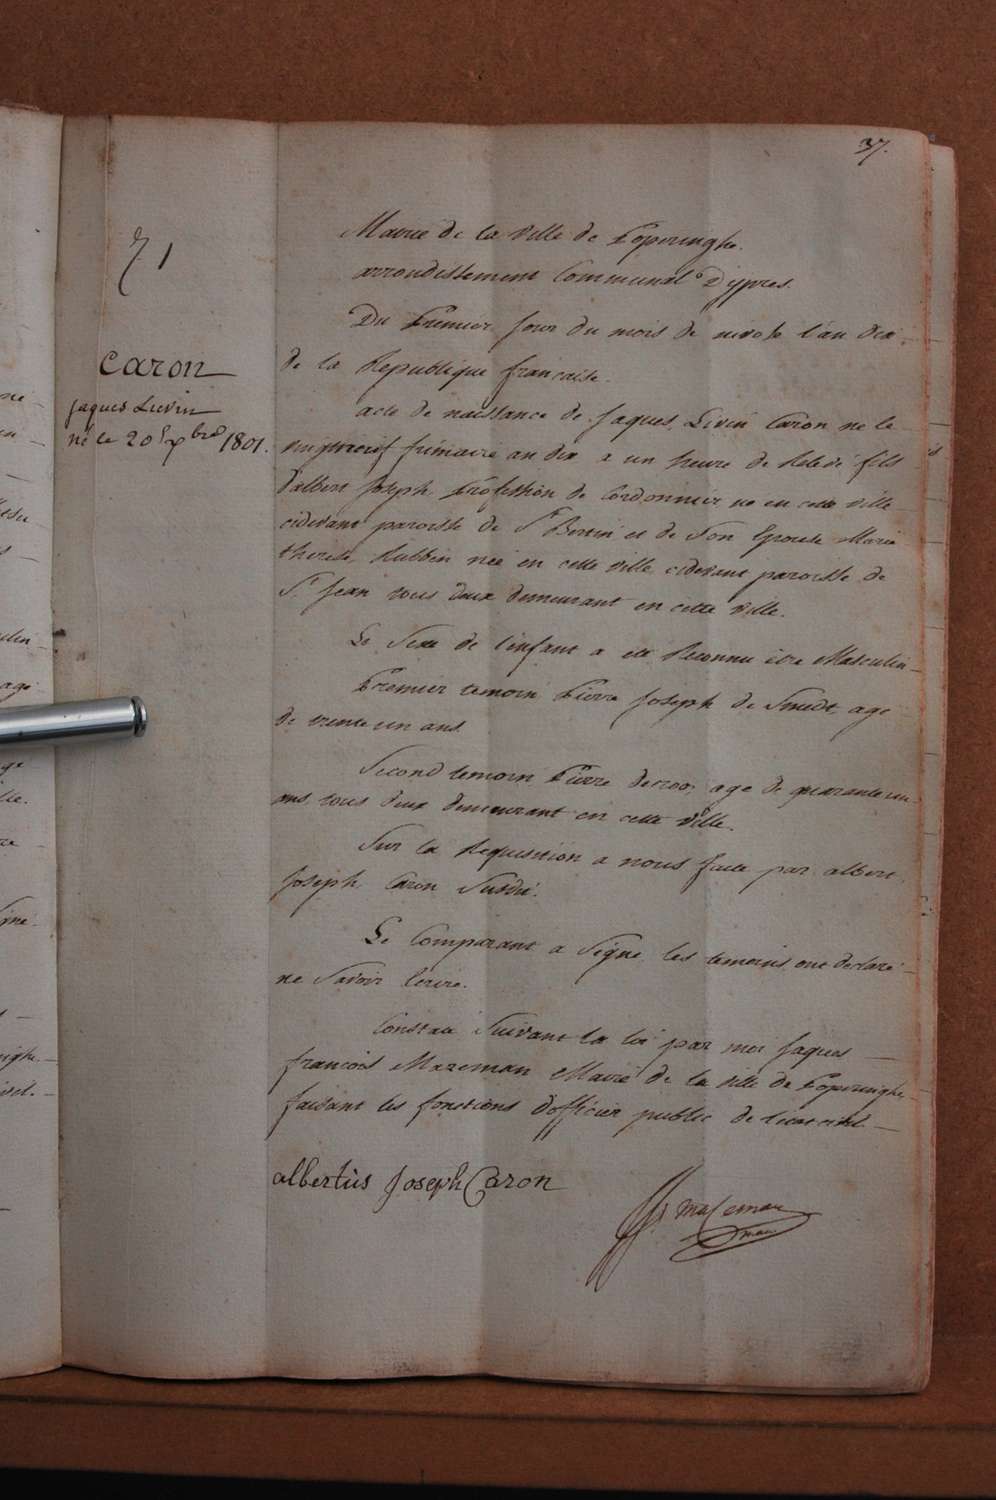 37.
71
Caron
jaques Lievin
né le 20 Xbre 1801.
Mairie de la Ville de Poperinghe.
arrondissement Communal Dypres.
Du Premier jour du mois de nivose l'an dix
de la Republique francaise.
acte de naissance de jaques Livin Caron ne le
vingtneuf frimaire an dix a un heure de Relevé fils
d'albert joseph Profession de Cordonnier, né en cette ville
cidevant paroisse de St Bertin et de Son Epouse Marie
therese Rubben née en cette ville cidevant paroisse de
St Jean tous deux demeurant en cette ville.
Le Sexe de l'enfant a été Reconnu être Masculin
Premier temoin Pierre Joseph de Smedt, age
de trente un ans.
Second temoin Pierre decroo, age de quarante un
ans, tous deux demeurant en cette Ville.
Sur la Requisition a nous faite par albert
joseph Caron Susdit.
Le Comparant a Signe les temoins ont declaré
ne Savoir Ecrire.
Constaté Suivant la loi par moi jaques
francois Mazeman Maire de la Ville de Poperinghe
faisant les fonctions d'officier public de l'etat civil.
albertus Joseph Caron
jf. Mazeman
maire